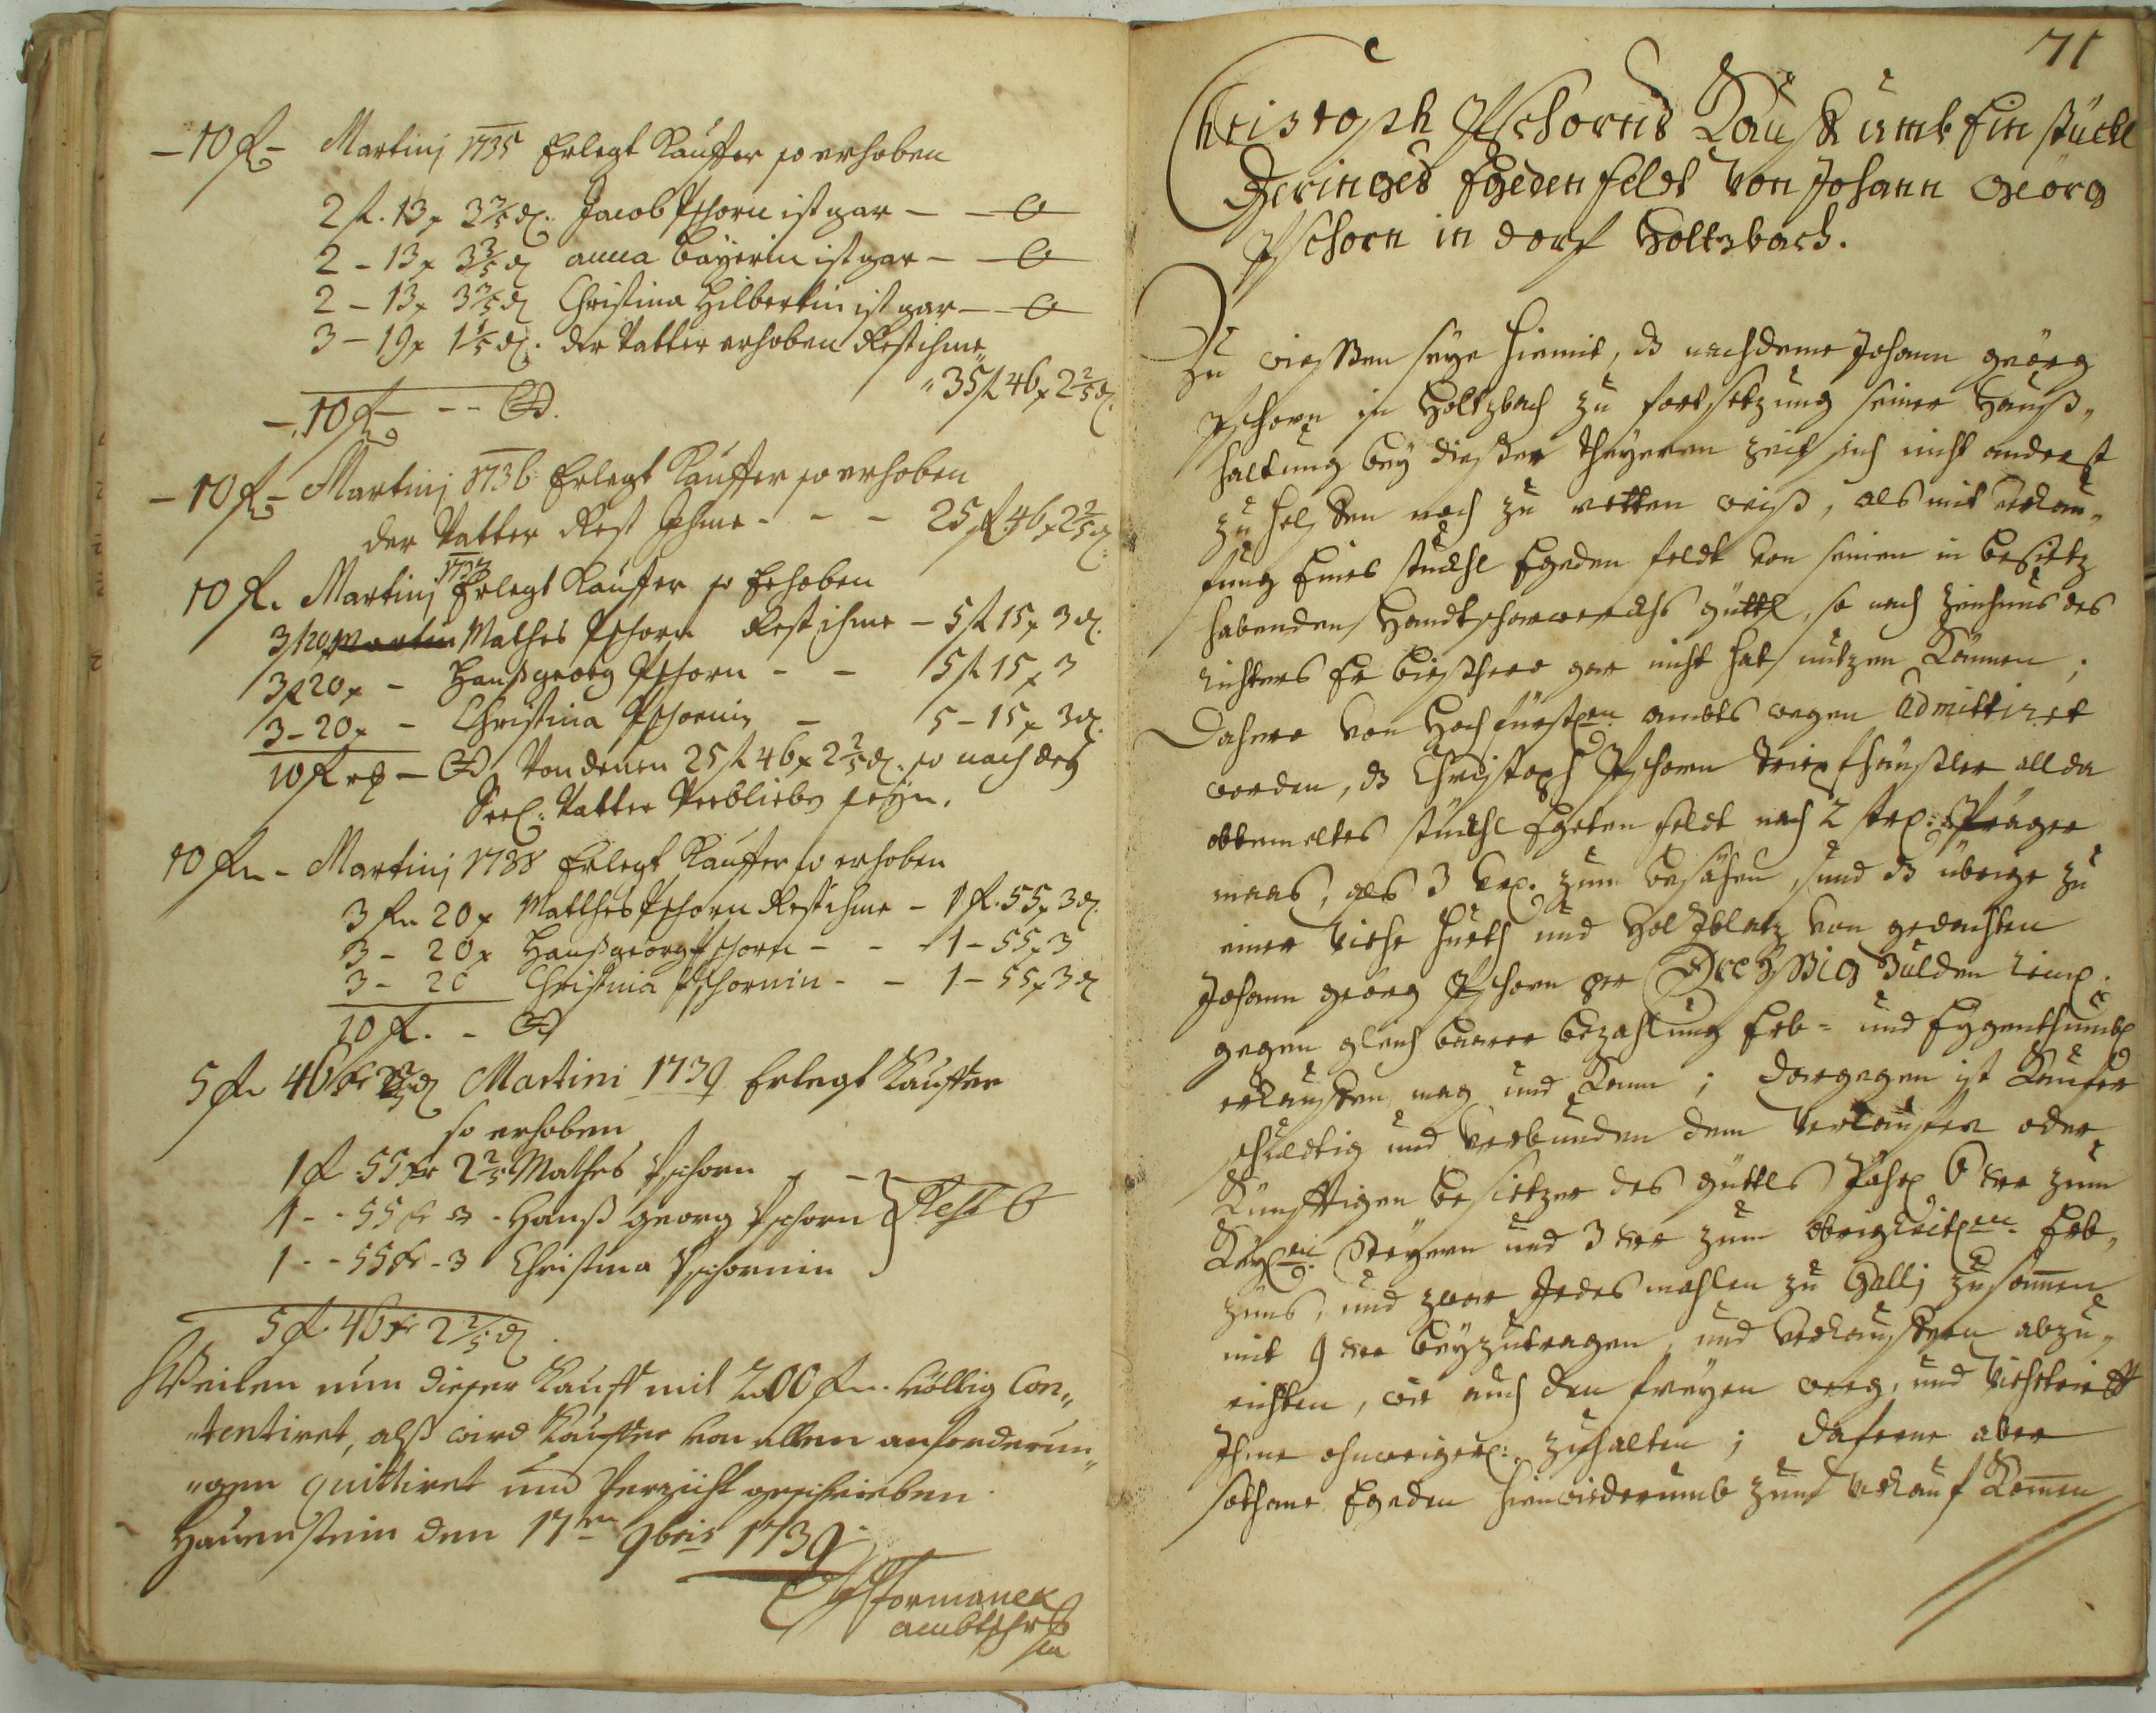 – 10 fl – Martinj 1735 Erlegt Kauffer so erhoben
2 fl. 13 x 3 3/5 d. Jacob Pschorn ist gar – – 0
2 – 13 x 3 3/5 d anna Bayerin ist gar – – 0
2 – 13 x 3 3/5 d Christina Hilbertin ist gar – – 0
3 – 19 x 1 1/5 d. der Vatter erhoben Rest ihme
" 35 fl 46 x 2 2/5 d.
– 10 fl –
– 10 fl – Martinj 1736 Erlegt Kauffer so erhoben
der Vatter Rest Ihme - - - 25 fl. 46 x 2 2/5 d.
1737
10 fl. Martinj Erlegt Kauffer so Erhoben
3 f 20 x Martin Mathes Pschorn Rest ihme – 5 fl 15 x 3 d.
3 f 20 x – Hanß georg Pschorn - - 5 fl 15 x 3
3 – 20 x – Christina Pschornin – 5 – 15 x 3 d.
10 fl – Von denen 25 fl 46 x 2 2/5 d. so nach des
Seel: Vatter Verblieben seyn.
10 fl – Martinj 1738 Erlegt Kauffer so erhoben
3 fl 20 x Mathes Pschorn Rest ihme – 1 fl. 55 x 3 d.
3 – 20 x Hanß georg Pschorn - - 1 – 55 x 3
3 – 20 Christina Pschornin - - 1 – 55 x 3 d
10 fl. –
5 fl 46 xr 2 2/5 d Martini 1739 Erlegt Kauffer
so erhoben
1 fl 55 xr 2 2/5 Mathes Pschorn
1 - - 55 xr 3 - Hanß georg Pschorn } Rest 0
1 - - 55 xr - 3 Christina Pschornin
5 fl 46 xr 2 2/5 d
Weilen nun dieser Kauff mit 200 fl. völlig Con„
„tentiret, alß wird Kauffer von allen anforderun„
„gen quittiret und Verzicht geschrieben
Hauenstein den 17ten 9bris 1739
Formanek
ambtschr
71
Christoph Pschorns Kauff umb Ein stückl
Geringes Egeden feldt von Johann Georg
Pschorn in dorf Holtzbach.
Zu wießen seye hiemit, dz nachdeme Johann georg
Pschorn in Holtzbach zu fortsetzung seiner Hauß„
haltung bey dießer theyeren zeit sich nicht anderst
zu helffen noch zu retten weiß, als mit verkau„
fung Eines stuckhl Egeden feldt von seinen in besietz
habenden Handtscharwerckhs güttl, so nach Zeichnus des
Richters Er bießhero gar nicht hat nutzen können;
Dahero von Hochfürstlen ambts wegen Admittiret
worden, dz Christoph Pschorn Tripfhäußler allda
obbemeltes stuckhl Egeten feldt nach 2 str. Präger
maas, als 3 zum besähen, und dz übrige zu
einer Viehe Hueth und Holzblatz von gedachten
Johann georg Pschorn per Dreyßig Gulden
gegen gleich baarer bezahlung Erb- und Eygenthumbl
erkauffen mag und kann; dargegen ist Kaufer
schuldtig und verbunden dem Verkaufer oder
Künfftigen besietzer des güttls Jährl 6 xer zum
Kayl. Steyern und 3 xer zum obrigkeitlen Erb„
zinß, und zwar Jedes mahlen zu Gallj zusammen
mit 9 xer beyzutragen, und Verkauffern abzu„
richten, wie auch den freyen weeg, und Viehetrifft
Ihme ohnweigerl: zuhalten; dafern aber
sothane Egeden hinwiederumb zum Verkauf komen